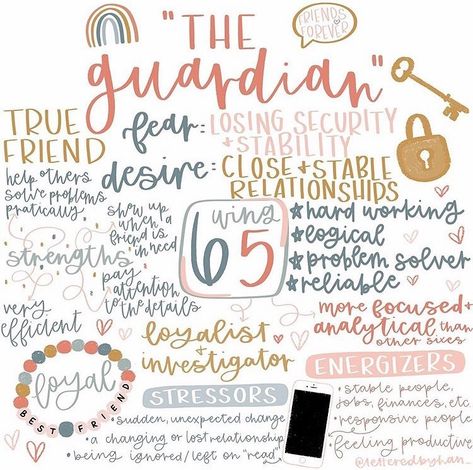 "THE
guardian"
FRIENDS
FOREVER
TRUE
FRIEND
fear: LOSING SECURITY
+ STABILITY
desire: CLOSE + STABLE
RELATIONSHIPS
help others
solve problems
pratically.
show up
when a
friend is
in need
strengths
pay
attention
to the details
very
efficient
wing
6 5
*hard working
*logical
*problem solver
*reliable
more focused +
analytical than
other sixes
loyalist
+
investigator
loyal
BEST FRIEND
STRESSORS
• sudden, unexpected change
• a changing or lost relationship
• being ignored/left on "read"
ENERGIZERS
• stable people,
jobs, finances, etc.
• responsive people
• feeling productive
@letteredbyhan